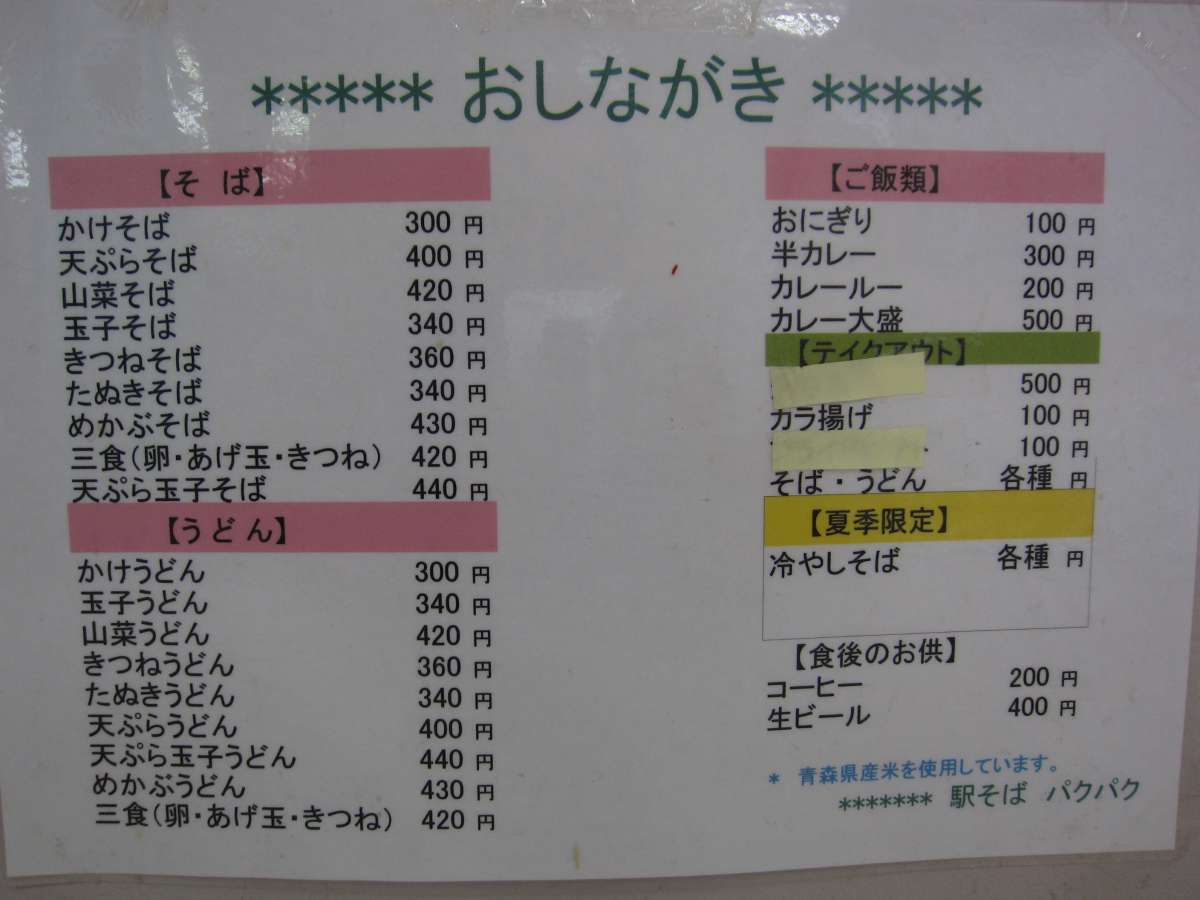 ***** おしながき *****
【そ ば】
かけそば 300 円
天ぷらそば 400 円
山菜そば 420 円
玉子そば 340 円
きつねそば 360 円
たぬきそば 340 円
めかぶそば 430 円
三食(卵・あげ玉・きつね) 420 円
天ぷら玉子そば 440 円
【うどん】
かけうどん 300 円
玉子うどん 340 円
山菜うどん 420 円
きつねうどん 360 円
たぬきうどん 340 円
天ぷらうどん 400 円
天ぷら玉子うどん 440 円
めかぶうどん 430 円
三食(卵・あげ玉・きつね) 420 円
【ご飯類】
おにぎり 100 円
半カレー 300 円
カレールー 200 円
カレー大盛 500 円
【テイクアウト】
500 円
カラ揚げ 100 円
100 円
そば・うどん 各種 円
【夏季限定】
冷やしそば 各種 円
【食後のお供】
コーヒー 200 円
生ビール 400 円
* 青森県産米を使用しています。
******* 駅そば パクパク